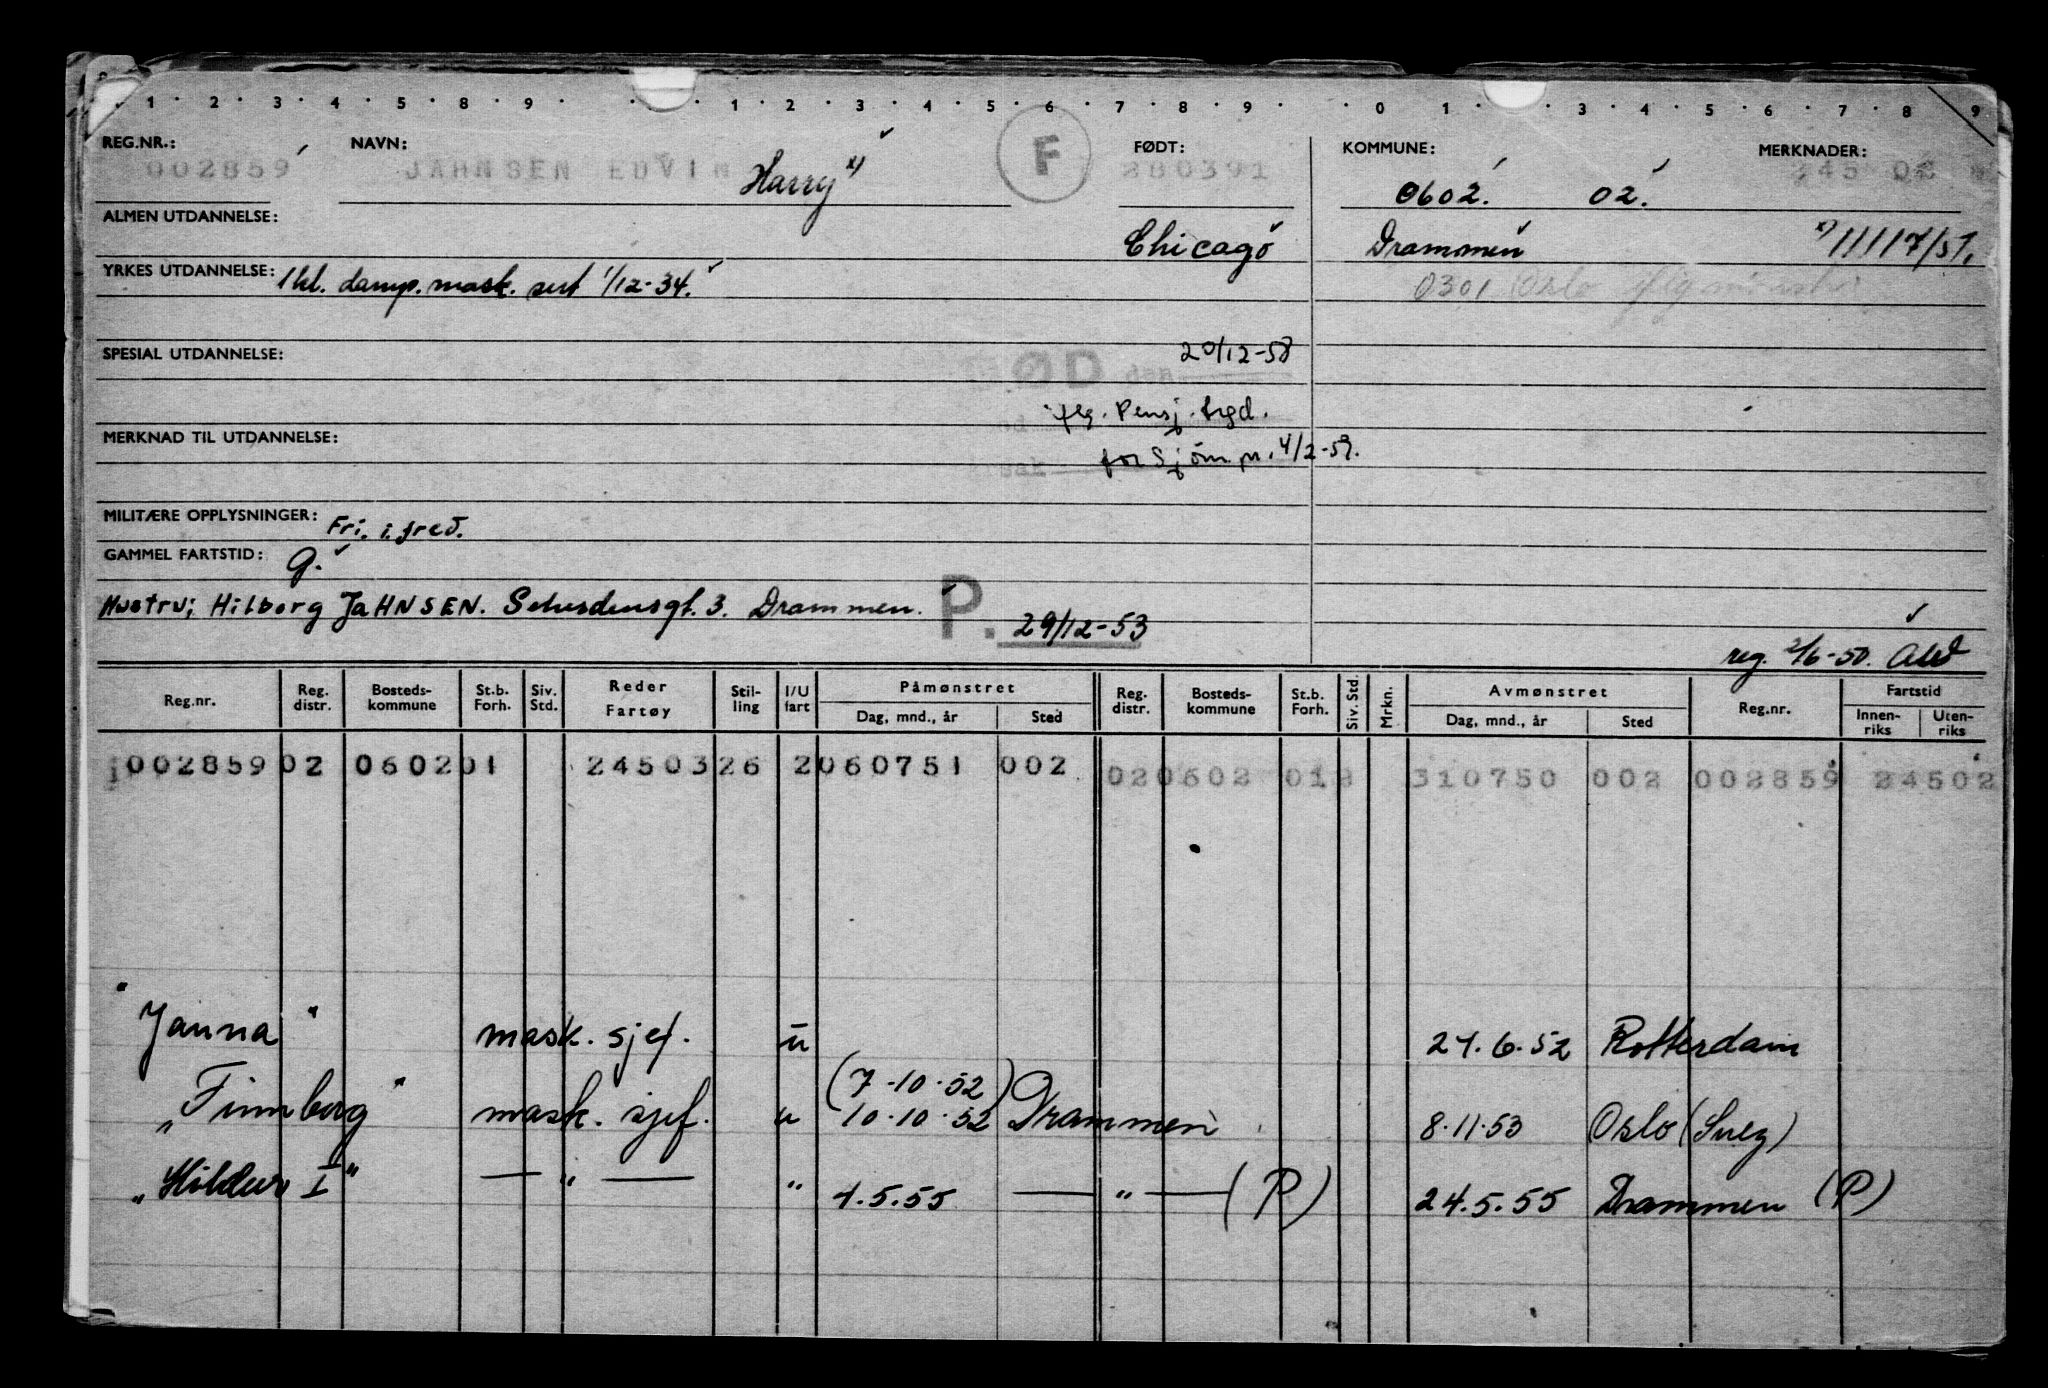 1 · 2 · 3 · 4 · 5 · 8 · 9 · · · 1 · 2 · 3 · 4 · 5 · 6 · 7 · 8 · 9 · · 0 · 1 · · 3 · 4 · 5 · 6 · 7 · 8 · 9
REG.NR.: NAVN: F FØDT: KOMMUNE: MERKNADER:
002859 JAHNSEN EDVIN Harry x) 280391 0602. 02. 245 02
ALMEN UTDANNELSE: Chicago Drammen x) 11117/51.
YRKES UTDANNELSE: 1 kl. damp. mask. sert 1/12-34. 0301 Oslo
SPESIAL UTDANNELSE: DØD den 20/12-58
flg. Pensj. trgd.
MERKNAD TIL UTDANNELSE: for Sjøm pr. 4/2-59.
MILITÆRE OPPLYSNINGER: Fri. i. fred.
GAMMEL FARTSTID: g.
Hustru; Hilborg JAHNSEN. 3. Drammen. P. 29/12-53
reg. 2/6-50.
Reg.nr. Reg. distr. Bosteds-kommune St.b. Forh. Siv. Std. Reder Fartøy Stil-ling I/U fart Påmønstret Dag, mnd., år Sted Reg. distr. Bosteds-kommune St.b. Forh. Siv. Std. Mrkn. Avmønstret Dag, mnd., år Sted Reg.nr. Fartstid Innen-riks Uten-riks
002859 02 0602 01 24503 26 2 060751 002 02 0602 01 310750 002 002859 24502
"Janna" mask. sjef. u 27.6.52 Rotterdam
(7-10-52)
"Finnborg" mask. sjef. u 10-10-52 Drammen 8.11.53 Oslo (Suez)
"Hildur I" — " — " 4.5.55 — " — (P) 24.5.55 Drammen (P)